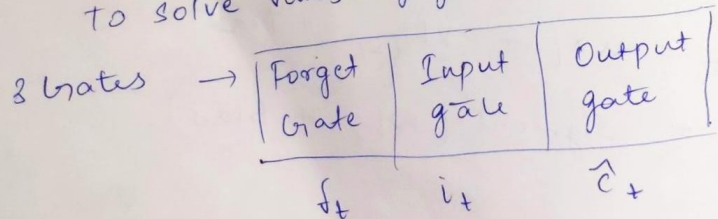 TO solve
3 Gates → Forget Gate Input gate Output gate
f_t i_t ĉ_t